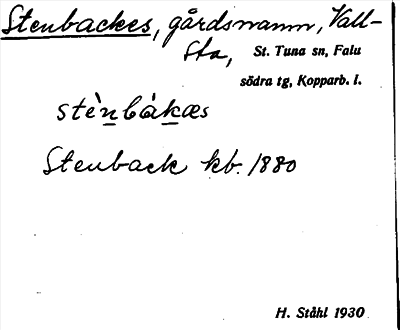 Stenbackes, gårdsnamn, Vall-
sta, St. Tuna sn, Falu
södra tg, Kopparb. l.
stè̱nbàḵæs
Stenback kb. 1880
H. Ståhl 1930